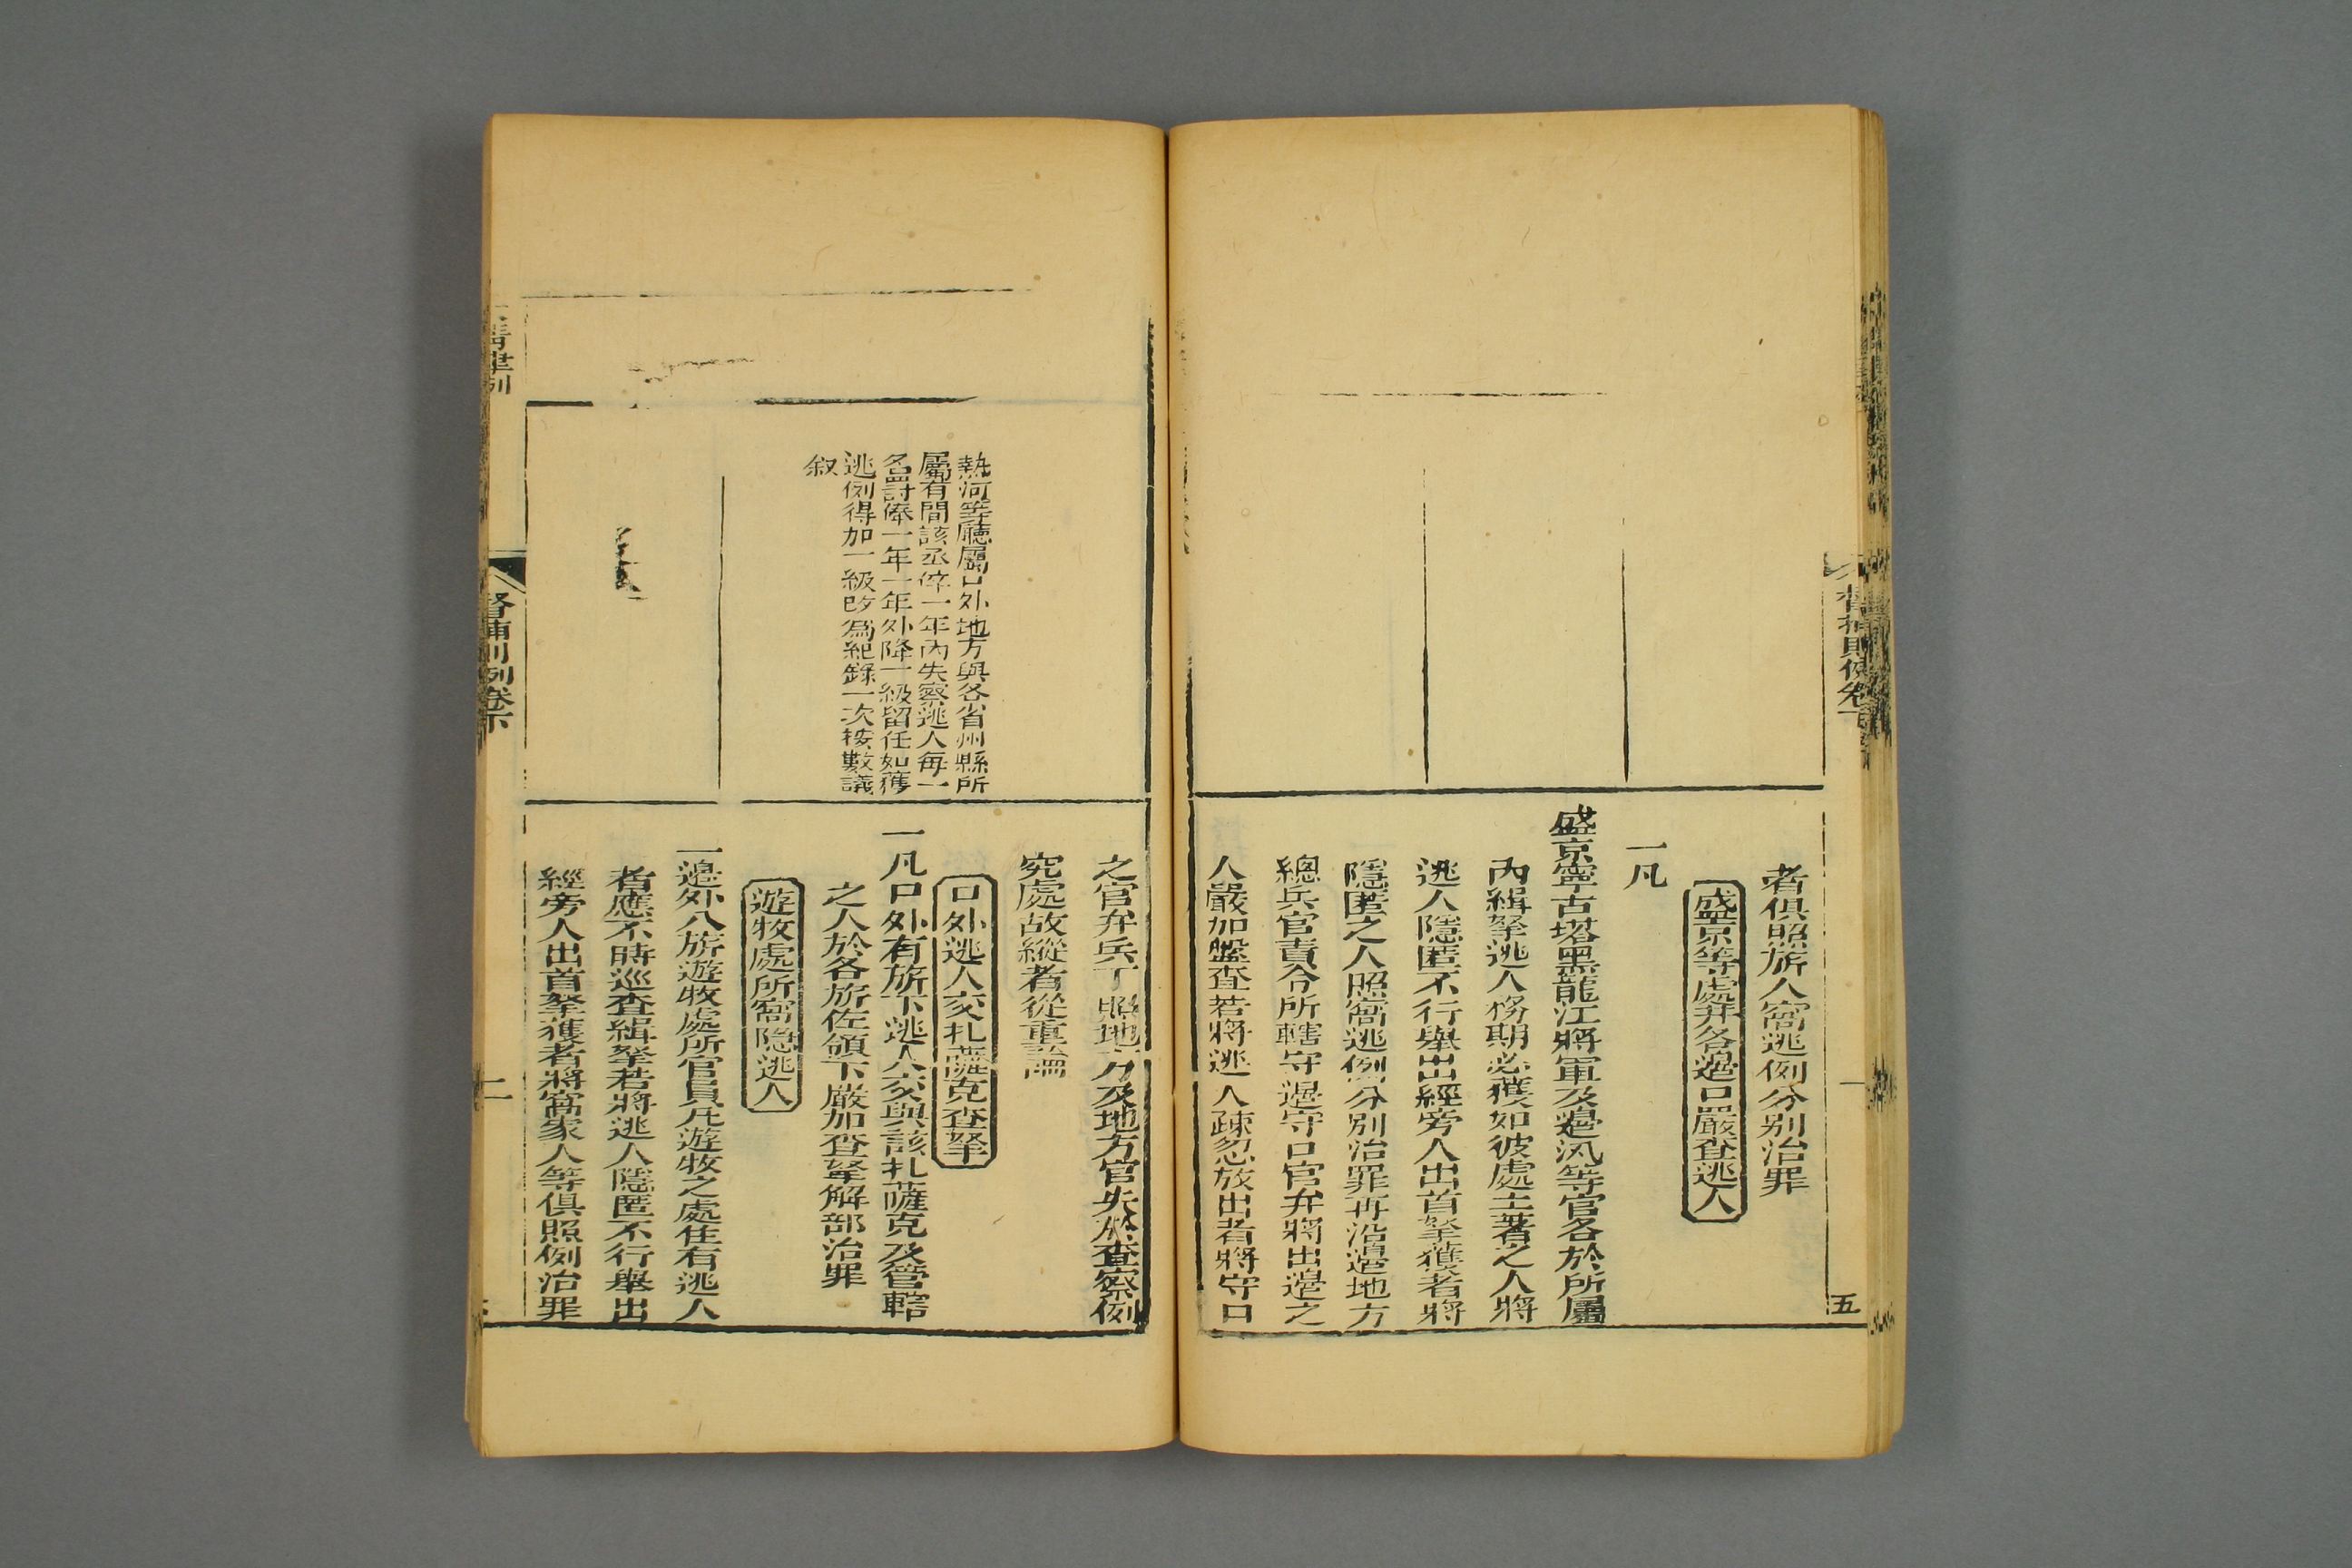 督捕則例卷下
五
者俱照旂人窩逃例分別治罪
盛京等處并各邊口嚴查逃人
一凡
盛京寧古塔黑龍江將軍及邊汛等官各於所屬
內緝拏逃人務期必獲如彼處土著之人將
逃人隱匿不行舉出經旁人出首拏獲者將
隱匿之人照窩逃例分別治罪再沿邊地方
總兵官責令所轄守邊守口官弁將出邊之
人嚴加盤查若將逃人疎忽放出者將守口
之官弁兵丁照地方及地方官失於查察例
究處故縱者從重論
口外逃人交扎薩克查拏
一凡口外有旂下逃人交與該扎薩克及管轄
之人於各旂佐領下嚴加查拏解部治罪
遊牧處所窩隱逃人
一邊外八旂遊牧處所官員凡遊牧之處住有逃人
者應不時巡查緝拏若將逃人隱匿不行舉出
經旁人出首拏獲者將窩家人等俱照例治罪
熱河等廳屬口外地方與各省州縣所
屬有間該丞倅一年內失察逃人每一
名罰俸一年一年外降一級留任如獲
逃例得加一級改爲紀錄一次按數議
敘
清律例
督捕則例卷下
二